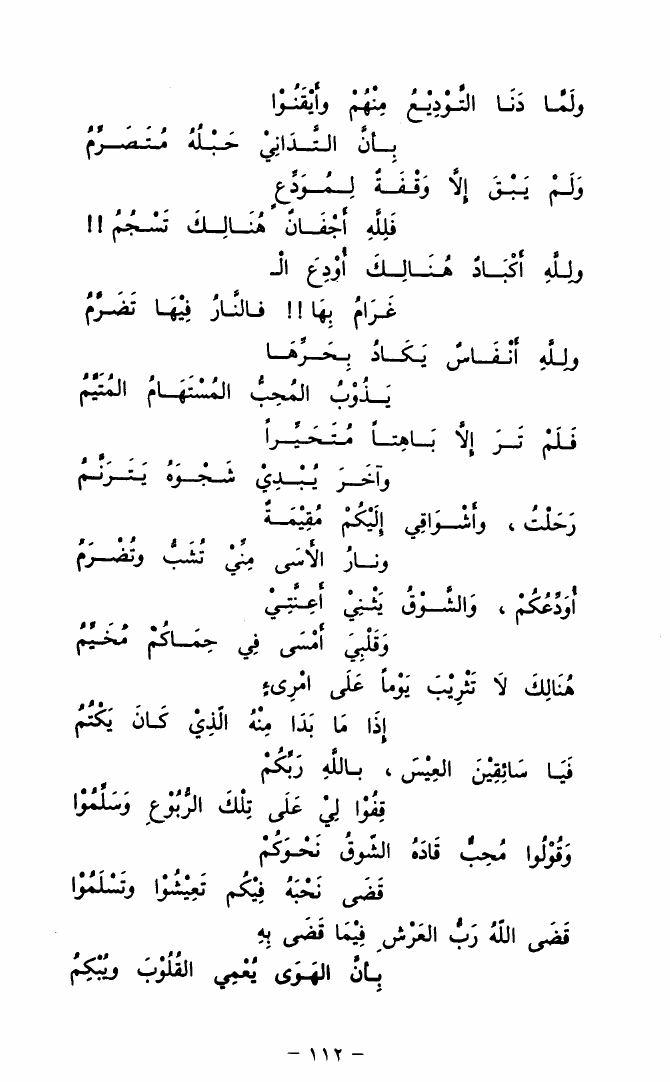 ولَمَّا دَنَا التَّوْدِيْعُ مِنْهُمْ وأَيْقَنُوْا
بِأنَّ التَّدَانِيْ حَبْلُهُ مُتَصَرِّمُ
وَلَمْ يَبْقَ إِلَّا وَقْفَةٌ لِمُوَدِّعٍ
فَلِلَّهِ أَجْفَانٌ هُنَالِكَ تَسْجُمُ !!
ولِلَّهِ أَكْبَادٌ هُنَالِكَ أُوْدِعَ الْـ
غَرَامُ بِهَا !! فالنَّارُ فِيْهَا تَضَرَّمُ
ولِلَّهِ أَنْفَاسٌ يَكَادُ بِحَرِّهَا
يَذُوْبُ المُحِبُّ المُسْتَهَامُ المُتَيَّمُ
فَلَمْ تَرَ إِلَّا بَاهِتاً مُتَحَيِّراً
وآخَرَ يُبْدِيْ شَجْوَهُ يَتَرَنَّمُ
رَحَلْتُ ، وأَشْوَاقِي إِلَيْكُمْ مُقِيْمَةٌ
ونارُ الأَسَى مِنِّيْ تُشَبُّ وتُضْرَمُ
أوَدِّعُكُمْ ، وَالشَّوْقُ يَثْنِيْ أَعِنَّتِيْ
وَقَلْبِيَ أَمْسَى فِي حِمَاكُمْ مُخَيِّمُ
هُنَالِكَ لَا تَثْرِيْبَ يَوْماً عَلَى امْرِىءٍ
إِذَا مَا بَدَا مِنْهُ الَّذِيْ كَانَ يَكْتُمُ
فَيَا سَائِقِيْنَ العِيْسَ ، باللَّهِ رَبِّكُمْ
قِفُوْا لِيْ عَلَى تِلْكَ الرُّبُوْعِ وَسَلِّمُوْا
وَقُوْلُوا مُحِبٌّ قَادَهُ الشَّوقُ نَحْوَكُمْ
قَضَى نَحْبَهُ فِيْكُم تَعِيْشُوْا وتَسْلَمُوْا
قَضَى اللَّهُ رَبُّ العَرْشِ فِيْمَا قَضَى بِهِ
بِأنَّ الهَوَى يُعْمِي القُلُوْبَ ويُبْكِمُ
- ١١٢ -